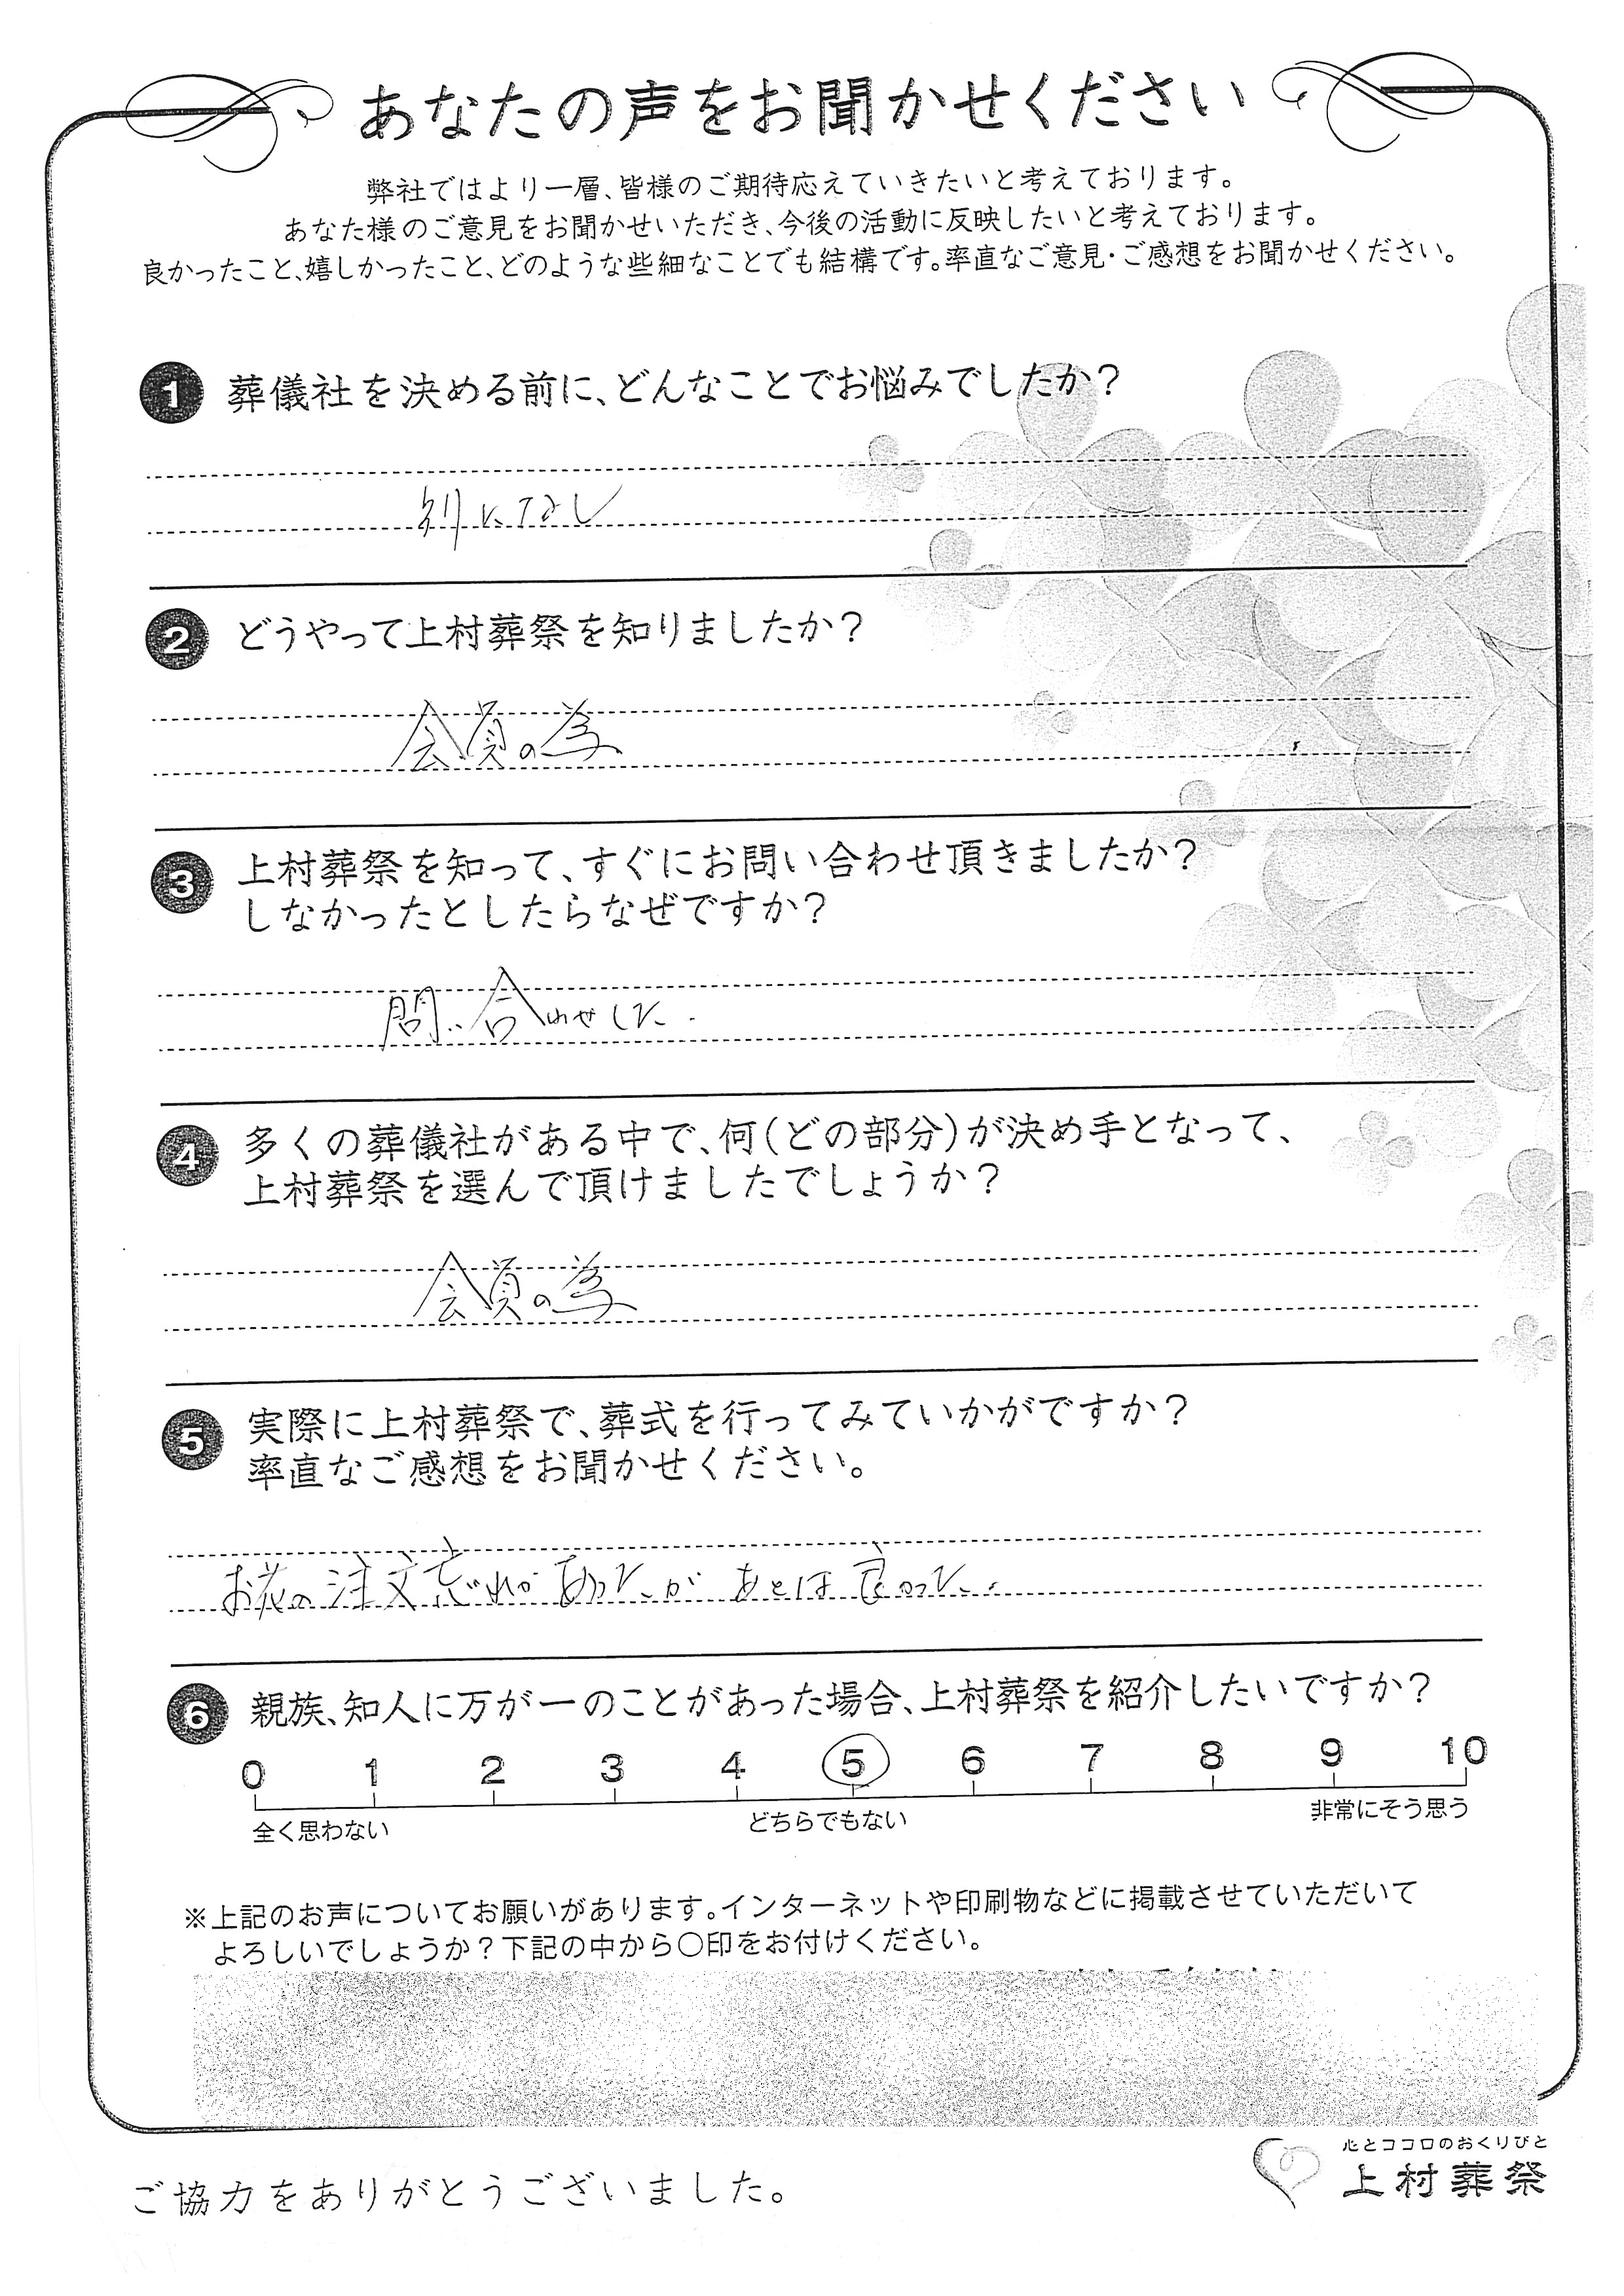 あなたの声をお聞かせください
弊社ではより一層、皆様のご期待応えていきたいと考えております。
あなた様のご意見をお聞かせいただき、今後の活動に反映したいと考えております。
良かったこと、嬉しかったこと、どのような些細なことでも結構です。率直なご意見・ご感想をお聞かせください。
1 葬儀社を決める前に、どんなことでお悩みでしたか？
別になし
2 どうやって上村葬祭を知りましたか？
会員の為
3 上村葬祭を知って、すぐにお問い合わせ頂きましたか？
しなかったとしたらなぜですか？
問い合わせした.
4 多くの葬儀社がある中で、何（どの部分）が決め手となって、
上村葬祭を選んで頂けましたでしょうか？
会員の為
5 実際に上村葬祭で、葬式を行ってみていかがですか？
率直なご感想をお聞かせください。
お花の注文忘れがあったが あとは良かった。
6 親族、知人に万が一のことがあった場合、上村葬祭を紹介したいですか？
0 1 2 3 4 5 6 7 8 9 10
全く思わない どちらでもない 非常にそう思う
※上記のお声についてお願いがあります。インターネットや印刷物などに掲載させていただいて
よろしいでしょうか？下記の中から〇印をお付けください。
心とココロのおくりびと
上村葬祭
ご協力をありがとうございました。